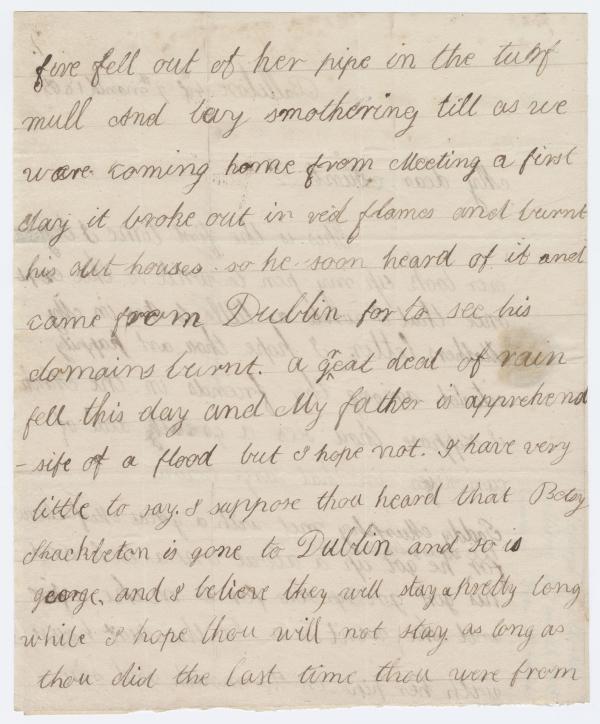 fire fell out of her pipe in the turf
mull and lay smothering till as we
were coming home from Meeting a first
day it broke out in red flames and burnt
his out houses so he soon heard of it and
came from Dublin for to see his
domains burnt. a great deal of rain
fell this day and My father is apprehend
-sife of a flood but I hope not. I have very
little to say. I suppose thou heard that Betsy
Shackleton is gone to Dublin and so is
george, and I believe they will stay a pretty long
while I hope thou will not stay as long as
thou did the last time thou were from